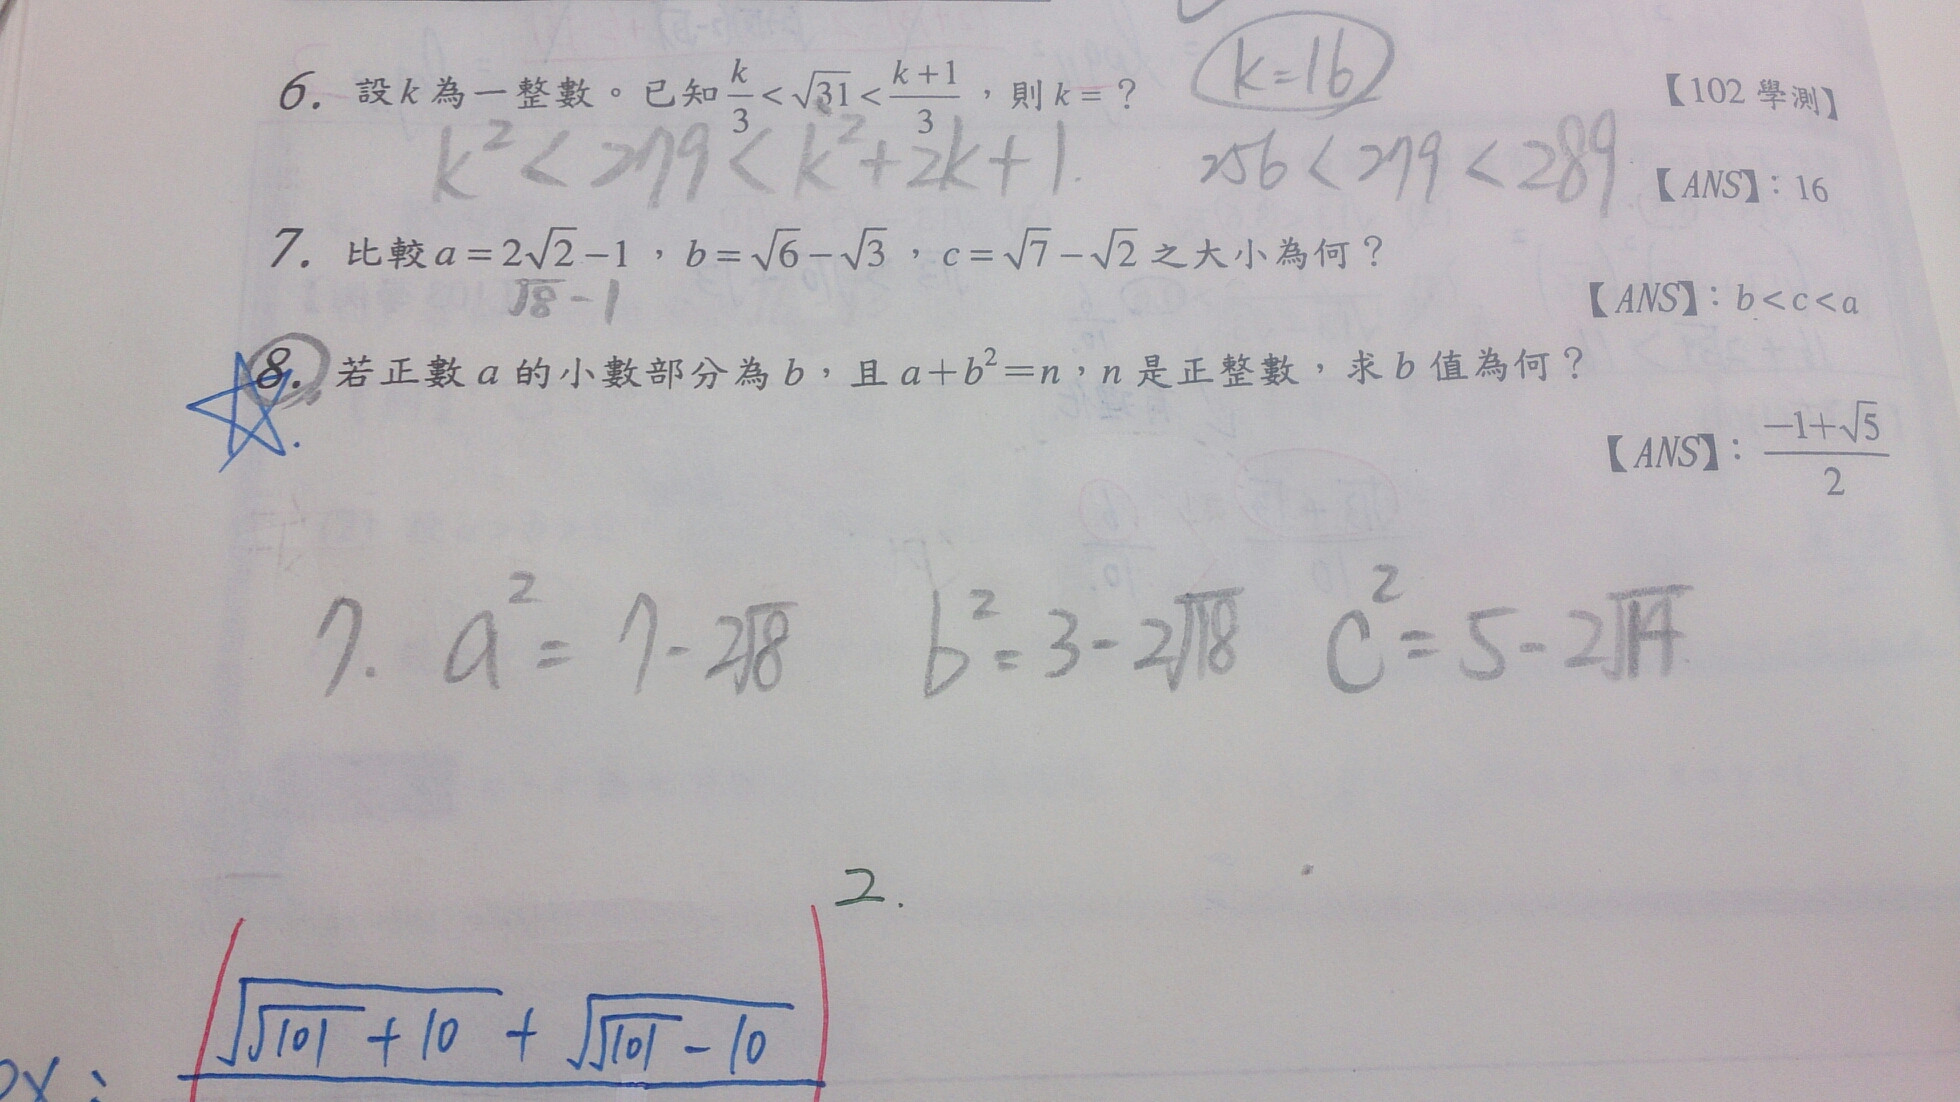 6. 設 k 為一整數。已知 k/3 < √31 < (k+1)/3，則 k = ？ k=16 【102 學測】
k² < 279 < k²+2k+1. 256 < 279 < 289
【ANS】：16
7. 比較 a = 2√2 − 1，b = √6 − √3，c = √7 − √2 之大小為何？
√8 - 1
【ANS】：b < c < a
8. 若正數 a 的小數部分為 b，且 a+b²=n，n 是正整數，求 b 值為何？
【ANS】：(−1+√5)/2
7. a² = 7-2√8 b² = 3-2√18 c² = 5-2√14
2.
√(√101 + 10) + √(√101 - 10)